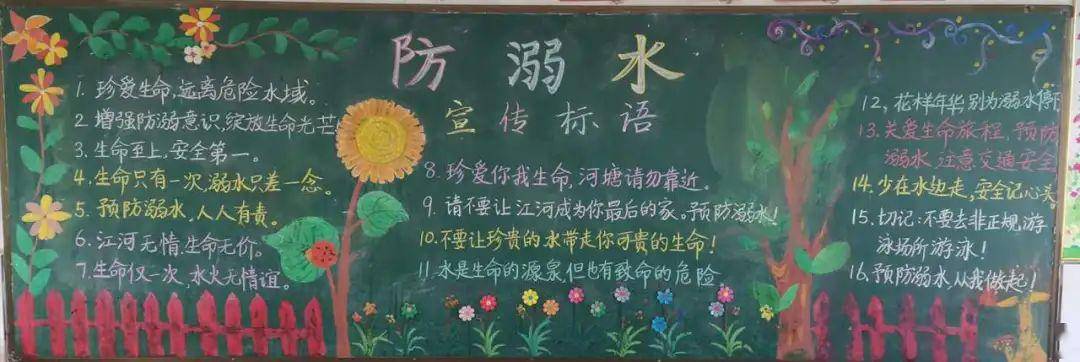 防溺水
宣传标语
1. 珍爱生命,远离危险水域。
2 增强防溺意识,绽放生命光芒
3. 生命至上,安全第一。
4. 生命只有一次,溺水只差一念。
5. 预防溺水,人人有责。
6. 江河无情,生命无价。
7. 生命仅一次,水火无情谊。
8. 珍爱你我生命,河塘请勿靠近。
9. 请不要让江河成为你最后的家。预防溺水!
10. 不要让珍贵的水带走你可贵的生命!
11. 水是生命的源泉,但也有致命的危险
12. 花样年华,别为溺水停
13. 关爱生命旅程,预防
溺水,注意交通安全
14. 少在水边走,安全记心
15. 切记:不要去非正规游
泳场所游泳!
16. 预防溺水,从我做起!